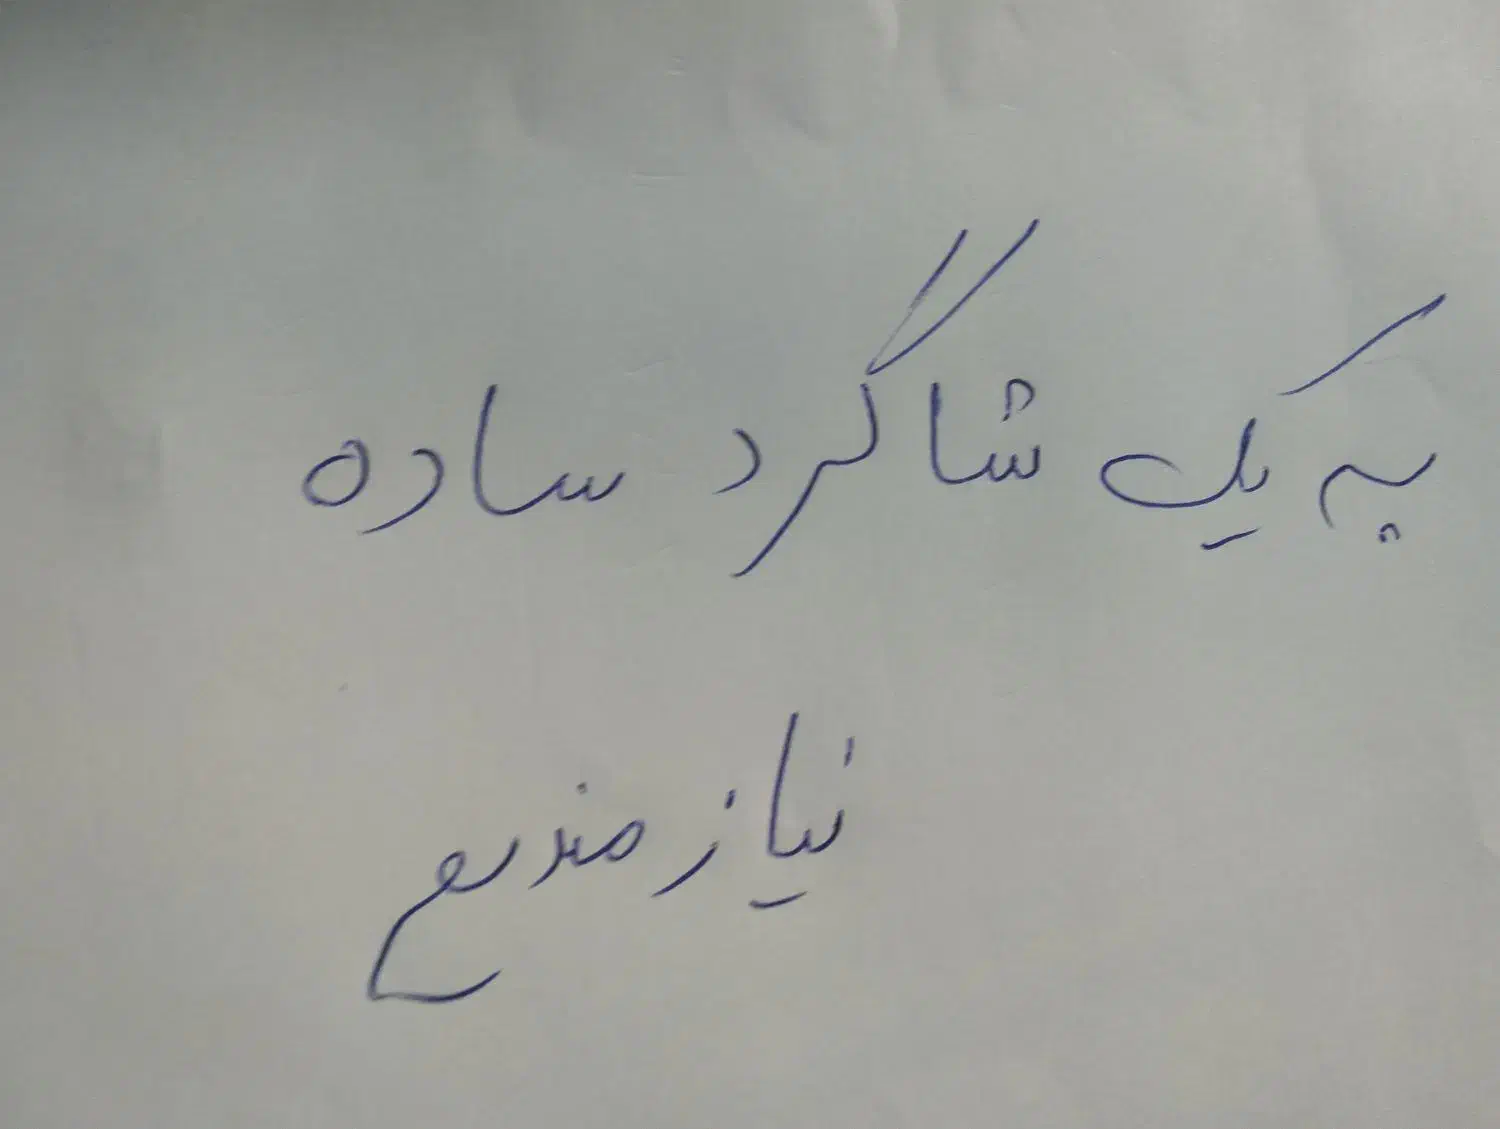 به یک شاگرد ساده
نیازمندیم